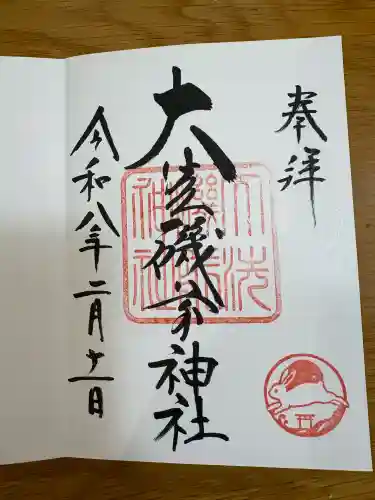 奉拝
大洗磯前神社
令和八年二月十一日
大洗
磯前
神社